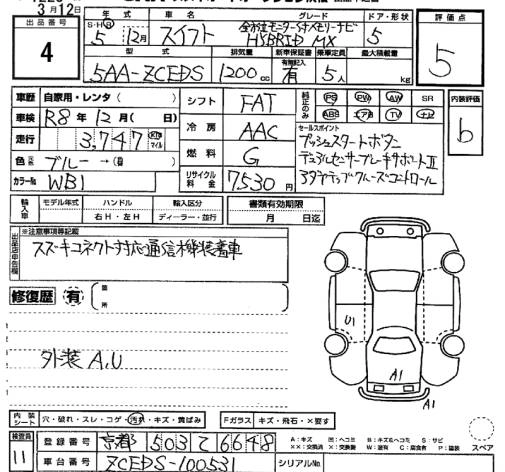 3月12日
出品番号
4
年式 車名 グレード ドア・形状
S・H・R 5年 12月 スイフト 全方位モニター付メモリーナビ HYBRID MX 5
評価点
5
型式 排気量 新車保証書 乗車定員 最大積載量
有無記入
5AA-ZCEDS 1200cc 有 5人 kg
車歴 自家用・レンタ( )
車検 R8年12月( 日)
走行 3,747 km マイル
色 ブルー→( )
カラーNo WB1
シフト FAT
冷房 AAC
燃料 G
リサイクル料金 7530円
純正のみ PS PW AW SR
ABS エアB TV ナビ
セールスポイント
プッシュスタートボタン
デュアルセンサーブレーキサポートⅡ
アダプティブクルーズコントロール
内装評価
b
輸入車 モデル年式 ハンドル 輸入区分
右H・左H ディーラー・並行
書類有効期限
月 日迄
出品店申告欄
※注意事項等記載
スズキコネクト対応通信機装着車
修復歴 有 箇所
外装 A,U
U1
A1
A1
内装シート 穴・破れ・スレ・コゲ・汚れ・キズ・黄ばみ
Fガラス キズ・飛石・×要す
検査員
11
登録番号 京都 503 て 6648
車台番号 ZCEDS-100531
シリアルNo.
A:キズ U:凹ヘコミ B:キズ&ヘコミ S:サビ
XX:交換済 X:交換要 W:波有 C:腐食有 P:塗装
スペア